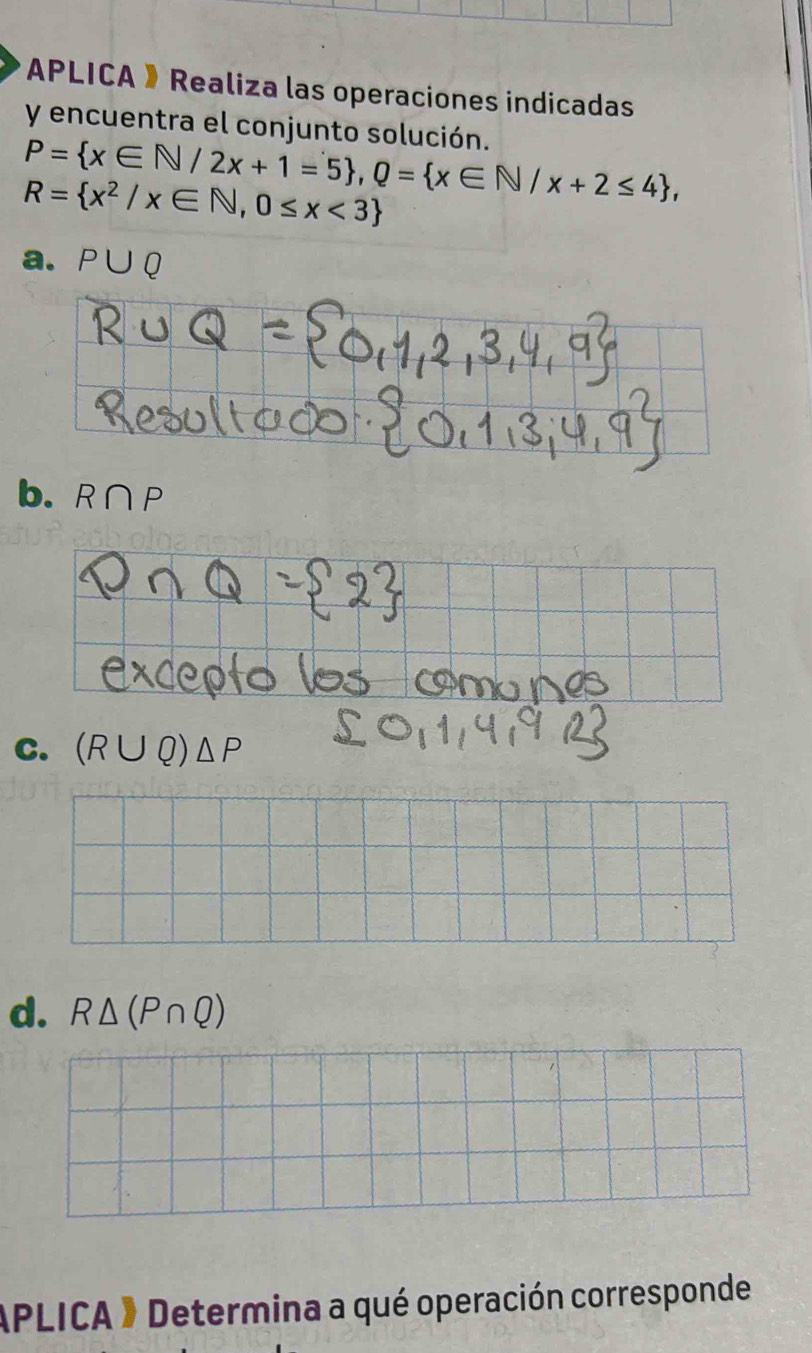 APLICA Realiza las operaciones indicadas
y encuentra el conjunto solución.
P = {x ∈ ℕ / 2x + 1 = 5}, Q = {x ∈ ℕ / x + 2 ≤ 4},
R = {x² / x ∈ ℕ, 0 ≤ x < 3}
a. P ∪ Q
R ∪ Q = {0,1,2,3,4,9}
Resultado: {0,1,3,4,9}
b. R ∩ P
P ∩ Q = {2}
excepto los comunes
{0,1,4,9,2}
c. (R ∪ Q) Δ P
d. R Δ (P ∩ Q)
APLICA Determina a qué operación corresponde